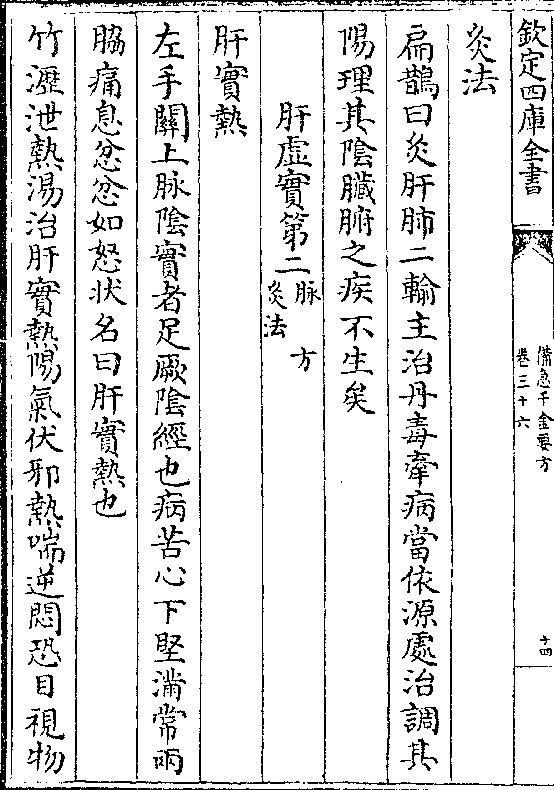 欽定四庫全書
備急千金要方
卷三十六
十四
灸法
扁鵲曰灸肝肺二輸主治丹毒牽病當依源處治調其
陽理其陰臓腑之疾不生矣
肝虛實第二脉 方
灸法
肝實熱
左手關上脉隂實者足厥隂經也病苦心下堅滿常兩
脇痛息忿忿如怒狀名曰肝實熱也
竹瀝泄熱湯治肝實熱陽氣伏邪熱喘逆悶恐目視物